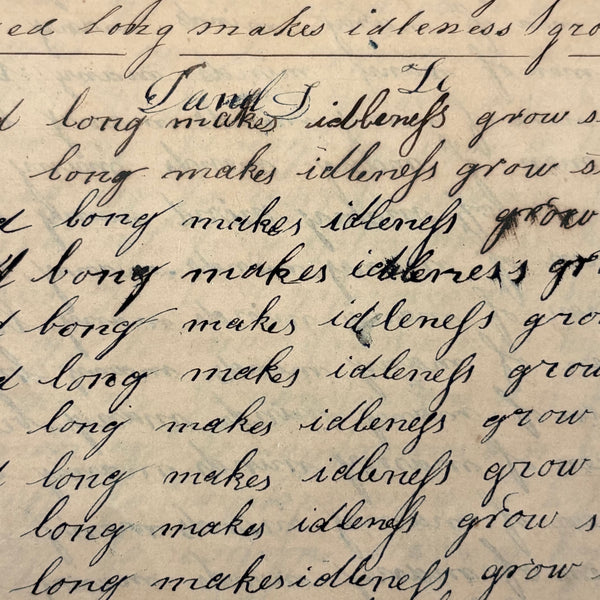 ed long makes idleness gro
Tand S L
d long makes idleneſs grow s
long makes idleneſs grow s
d long makes idleneſs grow
d bong makes idleness gr
d bong makes idleneſs gro
d long makes idleneſs grow
long makes idleneſs grow
d long makes idleneſs grow
long makes idleneſs grow s
long makes idleneſs grow